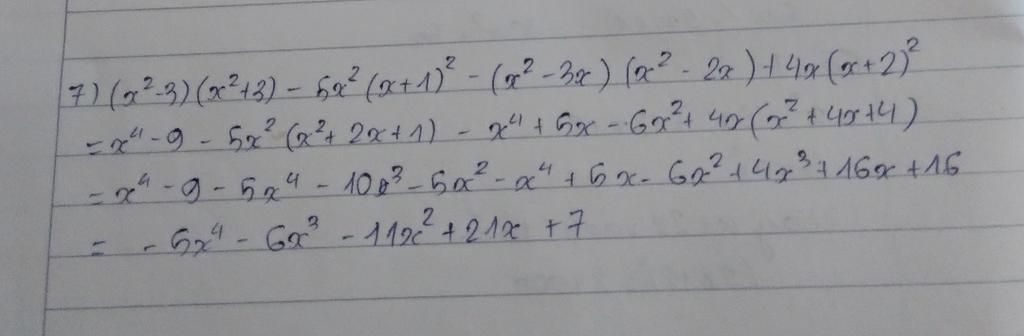 7) (x²-3)(x²+3) - 5x²(x+1)² - (x²-3x)(x²-2x)+4x(x+2)²
= x⁴-9 - 5x²(x²+2x+1) - x⁴+5x-6x²+4x(x²+4x+4)
= x⁴-9-5x⁴-10x³-5x²-x⁴+5x-6x²+4x³+16x+16
= -5x⁴-6x³-11x²+21x+7